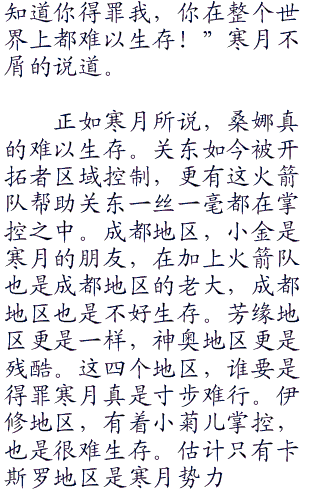 知道你得罪我，你在整个世
界上都难以生存！”寒月不
屑的说道。
正如寒月所说，桑娜真
的难以生存。关东如今被开
拓者区域控制，更有这火箭
队帮助关东一丝一毫都在掌
控之中。成都地区，小金是
寒月的朋友，在加上火箭队
也是成都地区的老大，成都
地区也是不好生存。芳缘地
区更是一样，神奥地区更是
残酷。这四个地区，谁要是
得罪寒月真是寸步难行。伊
修地区，有着小菊儿掌控，
也是很难生存。估计只有卡
斯罗地区是寒月势力